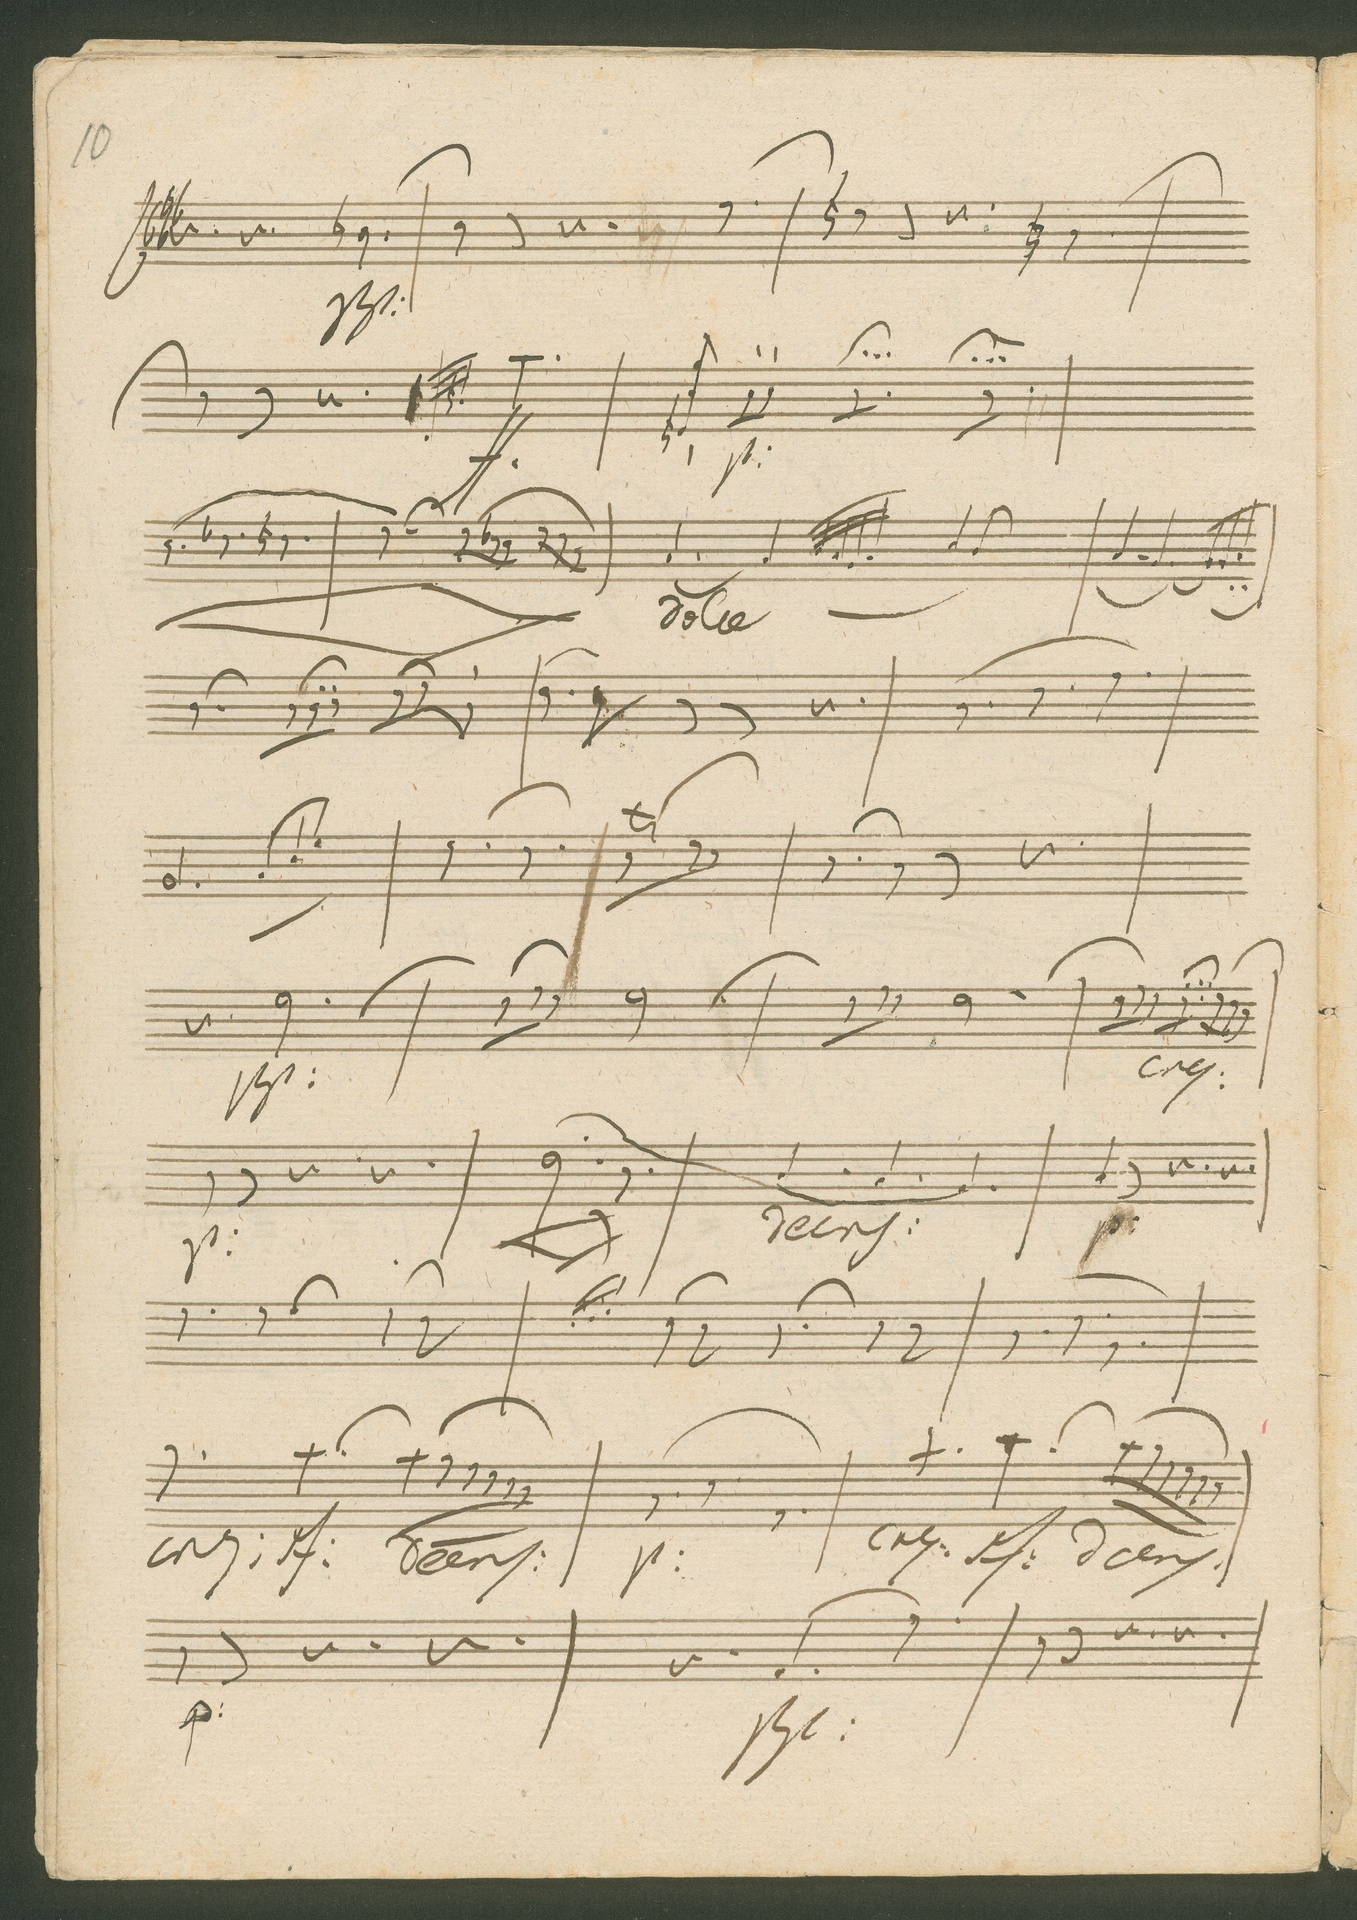 10
pp:
f.
p:
dolce
pp:
cresc:
p: decresc: p:
cresc: sf: decresc: p: cresc: sf: decresc.
p: pp: